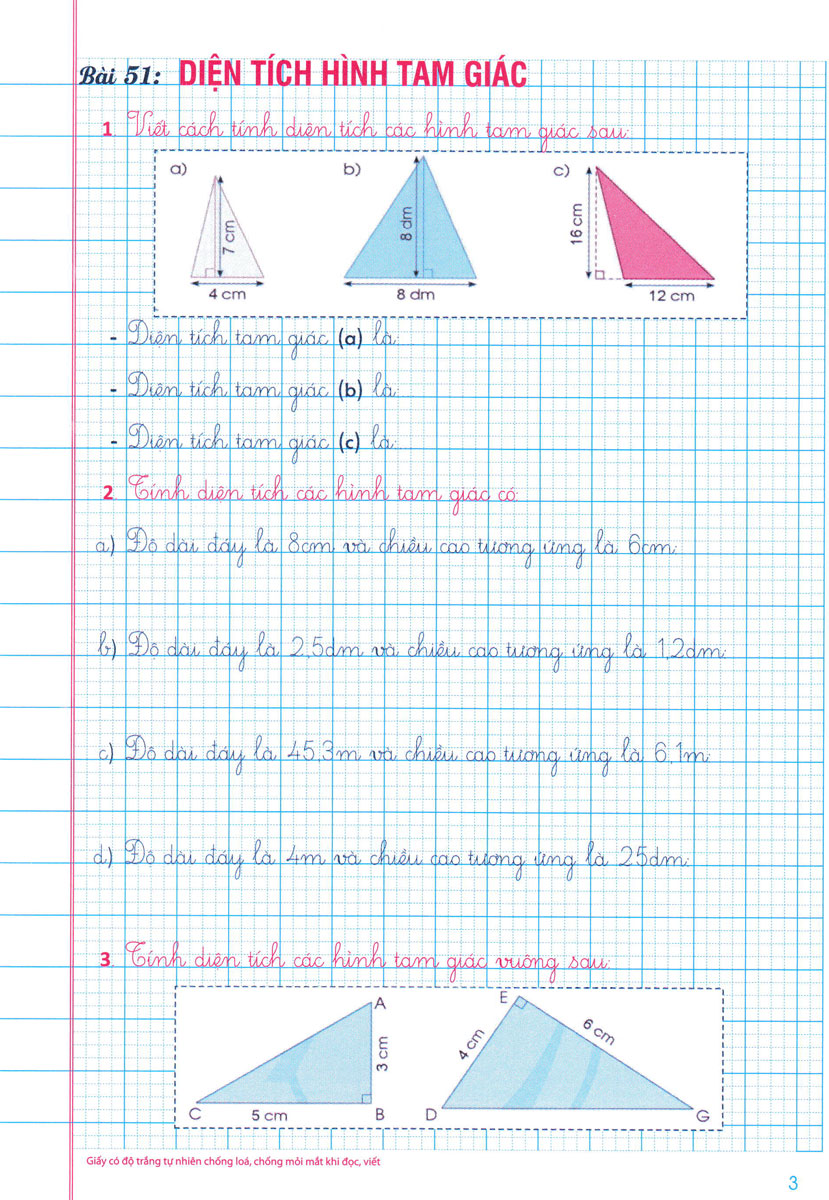 Bài 51: DIỆN TÍCH HÌNH TAM GIÁC
1. Viết cách tính diện tích các hình tam giác sau:
a) b) c)
7 cm 8 dm 16 cm
4 cm 8 dm 12 cm
- Diện tích tam giác (a) là:
- Diện tích tam giác (b) là:
- Diện tích tam giác (c) là:
2. Tính diện tích các hình tam giác có:
a) Độ dài đáy là 8cm và chiều cao tương ứng là 6cm:
b) Độ dài đáy là 2,5dm và chiều cao tương ứng là 1,2dm:
c) Độ dài đáy là 45,3m và chiều cao tương ứng là 6,1m:
d) Độ dài đáy là 4m và chiều cao tương ứng là 25dm:
3. Tính diện tích các hình tam giác vuông sau:
A E
3 cm 4 cm 6 cm
C 5 cm B D G
Giấy có độ trắng tự nhiên chống loá, chống mỏi mắt khi đọc, viết
3